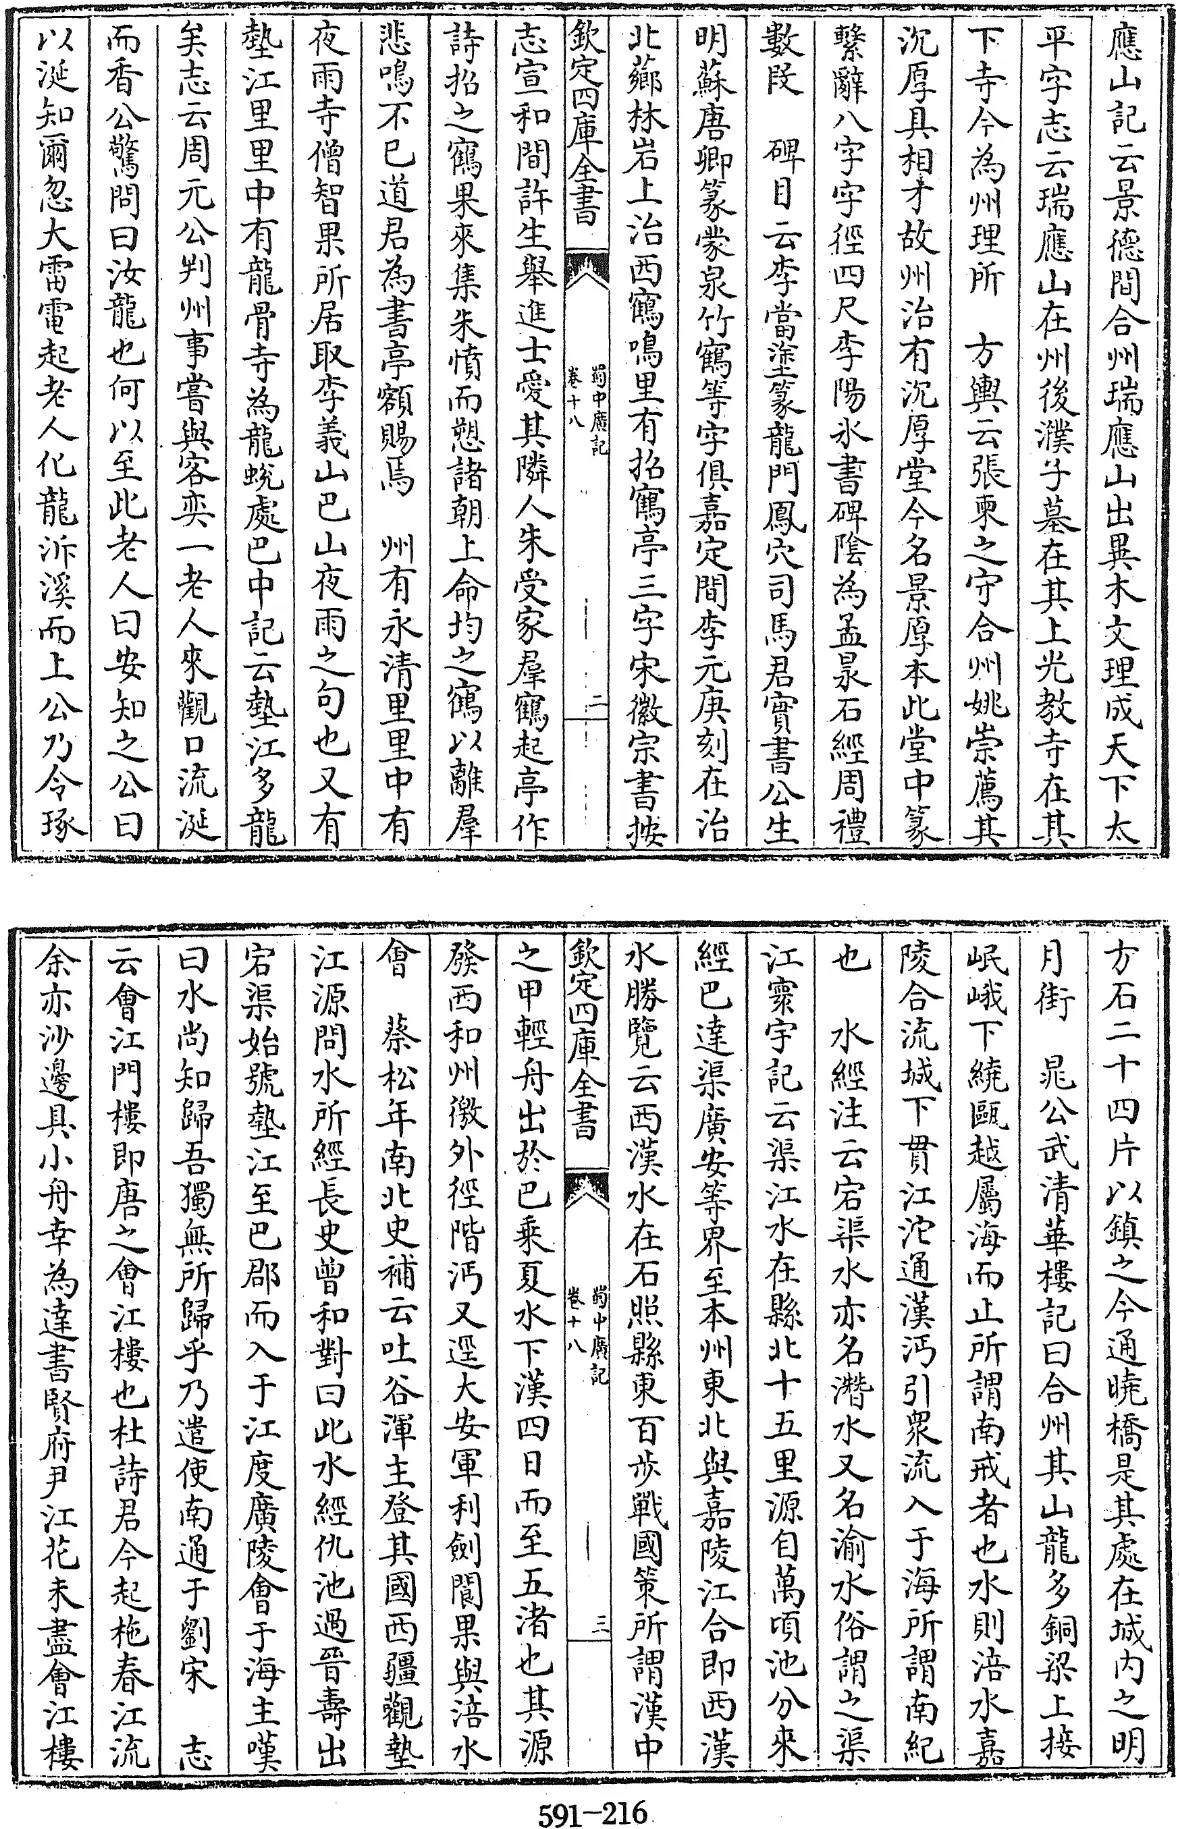 應山記云景德間合州瑞應山出異木文理成天下太
平字志云瑞應山在州後濮子墓在其上光教寺在其
下寺今為州理所　方輿云張柬之守合州姚崇薦其
沉厚具相才故州治有沉厚堂今名景厚本此堂中篆
繫辭八字字徑四尺李陽氷書碑陰為孟㫤石經周禮
數段　碑目云李當塗篆龍門鳳穴司馬君實書公生
明蘇唐卿篆蒙泉竹鶴等字俱嘉定間李元庚刻在治
北薌林岩上治西鶴鳴里有招鶴亭三字宋徽宗書按
欽定四庫全書
蜀中廣記
卷十八
二
志宣和間許生舉進士愛其隣人朱受家羣鶴起亭作
詩招之鶴果來集朱憤而愬諸朝上命均之鶴以離羣
悲鳴不已道君為書亭額賜焉　州有永清里里中有
夜雨寺僧智果所居取李義山巴山夜雨之句也又有
墊江里里中有龍骨寺為龍蛻處巴中記云墊江多龍
矣志云周元公判州事嘗與客奕一老人來觀口流涎
而香公驚問曰汝龍也何以至此老人曰安知之公曰
以涎知爾忽大雷電起老人化龍泝溪而上公乃令琢
方石二十四片以鎮之今通曉橋是其處在城内之明
月街　晁公武清華樓記曰合州其山龍多銅梁上接
岷峨下繞甌越屬海而止所謂南戒者也水則涪水嘉
陵合流城下貫江沱通漢沔引衆流入于海所謂南紀
也　水經注云宕渠水亦名潛水又名渝水俗謂之渠
江寰宇記云渠江水在縣北十五里源自萬頃池分來
經巴達渠廣安等界至本州東北與嘉陵江合即西漢
水勝覽云西漢水在石照縣東百步戰國策所謂漢中
欽定四庫全書
蜀中廣記
卷十八
三
之甲輕舟出於巴乗夏水下漢四日而至五渚也其源
發西和州徼外徑階沔又逕大安軍利劍閬果與涪水
會　蔡松年南北史補云吐谷渾主登其國西疆觀墊
江源問水所經長史曾和對曰此水經仇池過晉壽出
宕渠始號墊江至巴郡而入于江度廣陵會于海主嘆
曰水尚知歸吾獨無所歸乎乃遣使南通于劉宋　志
云會江門樓即唐之會江樓也杜詩君今起柂春江流
余亦沙邊具小舟幸為達書賢府尹江花未盡會江樓
591-216